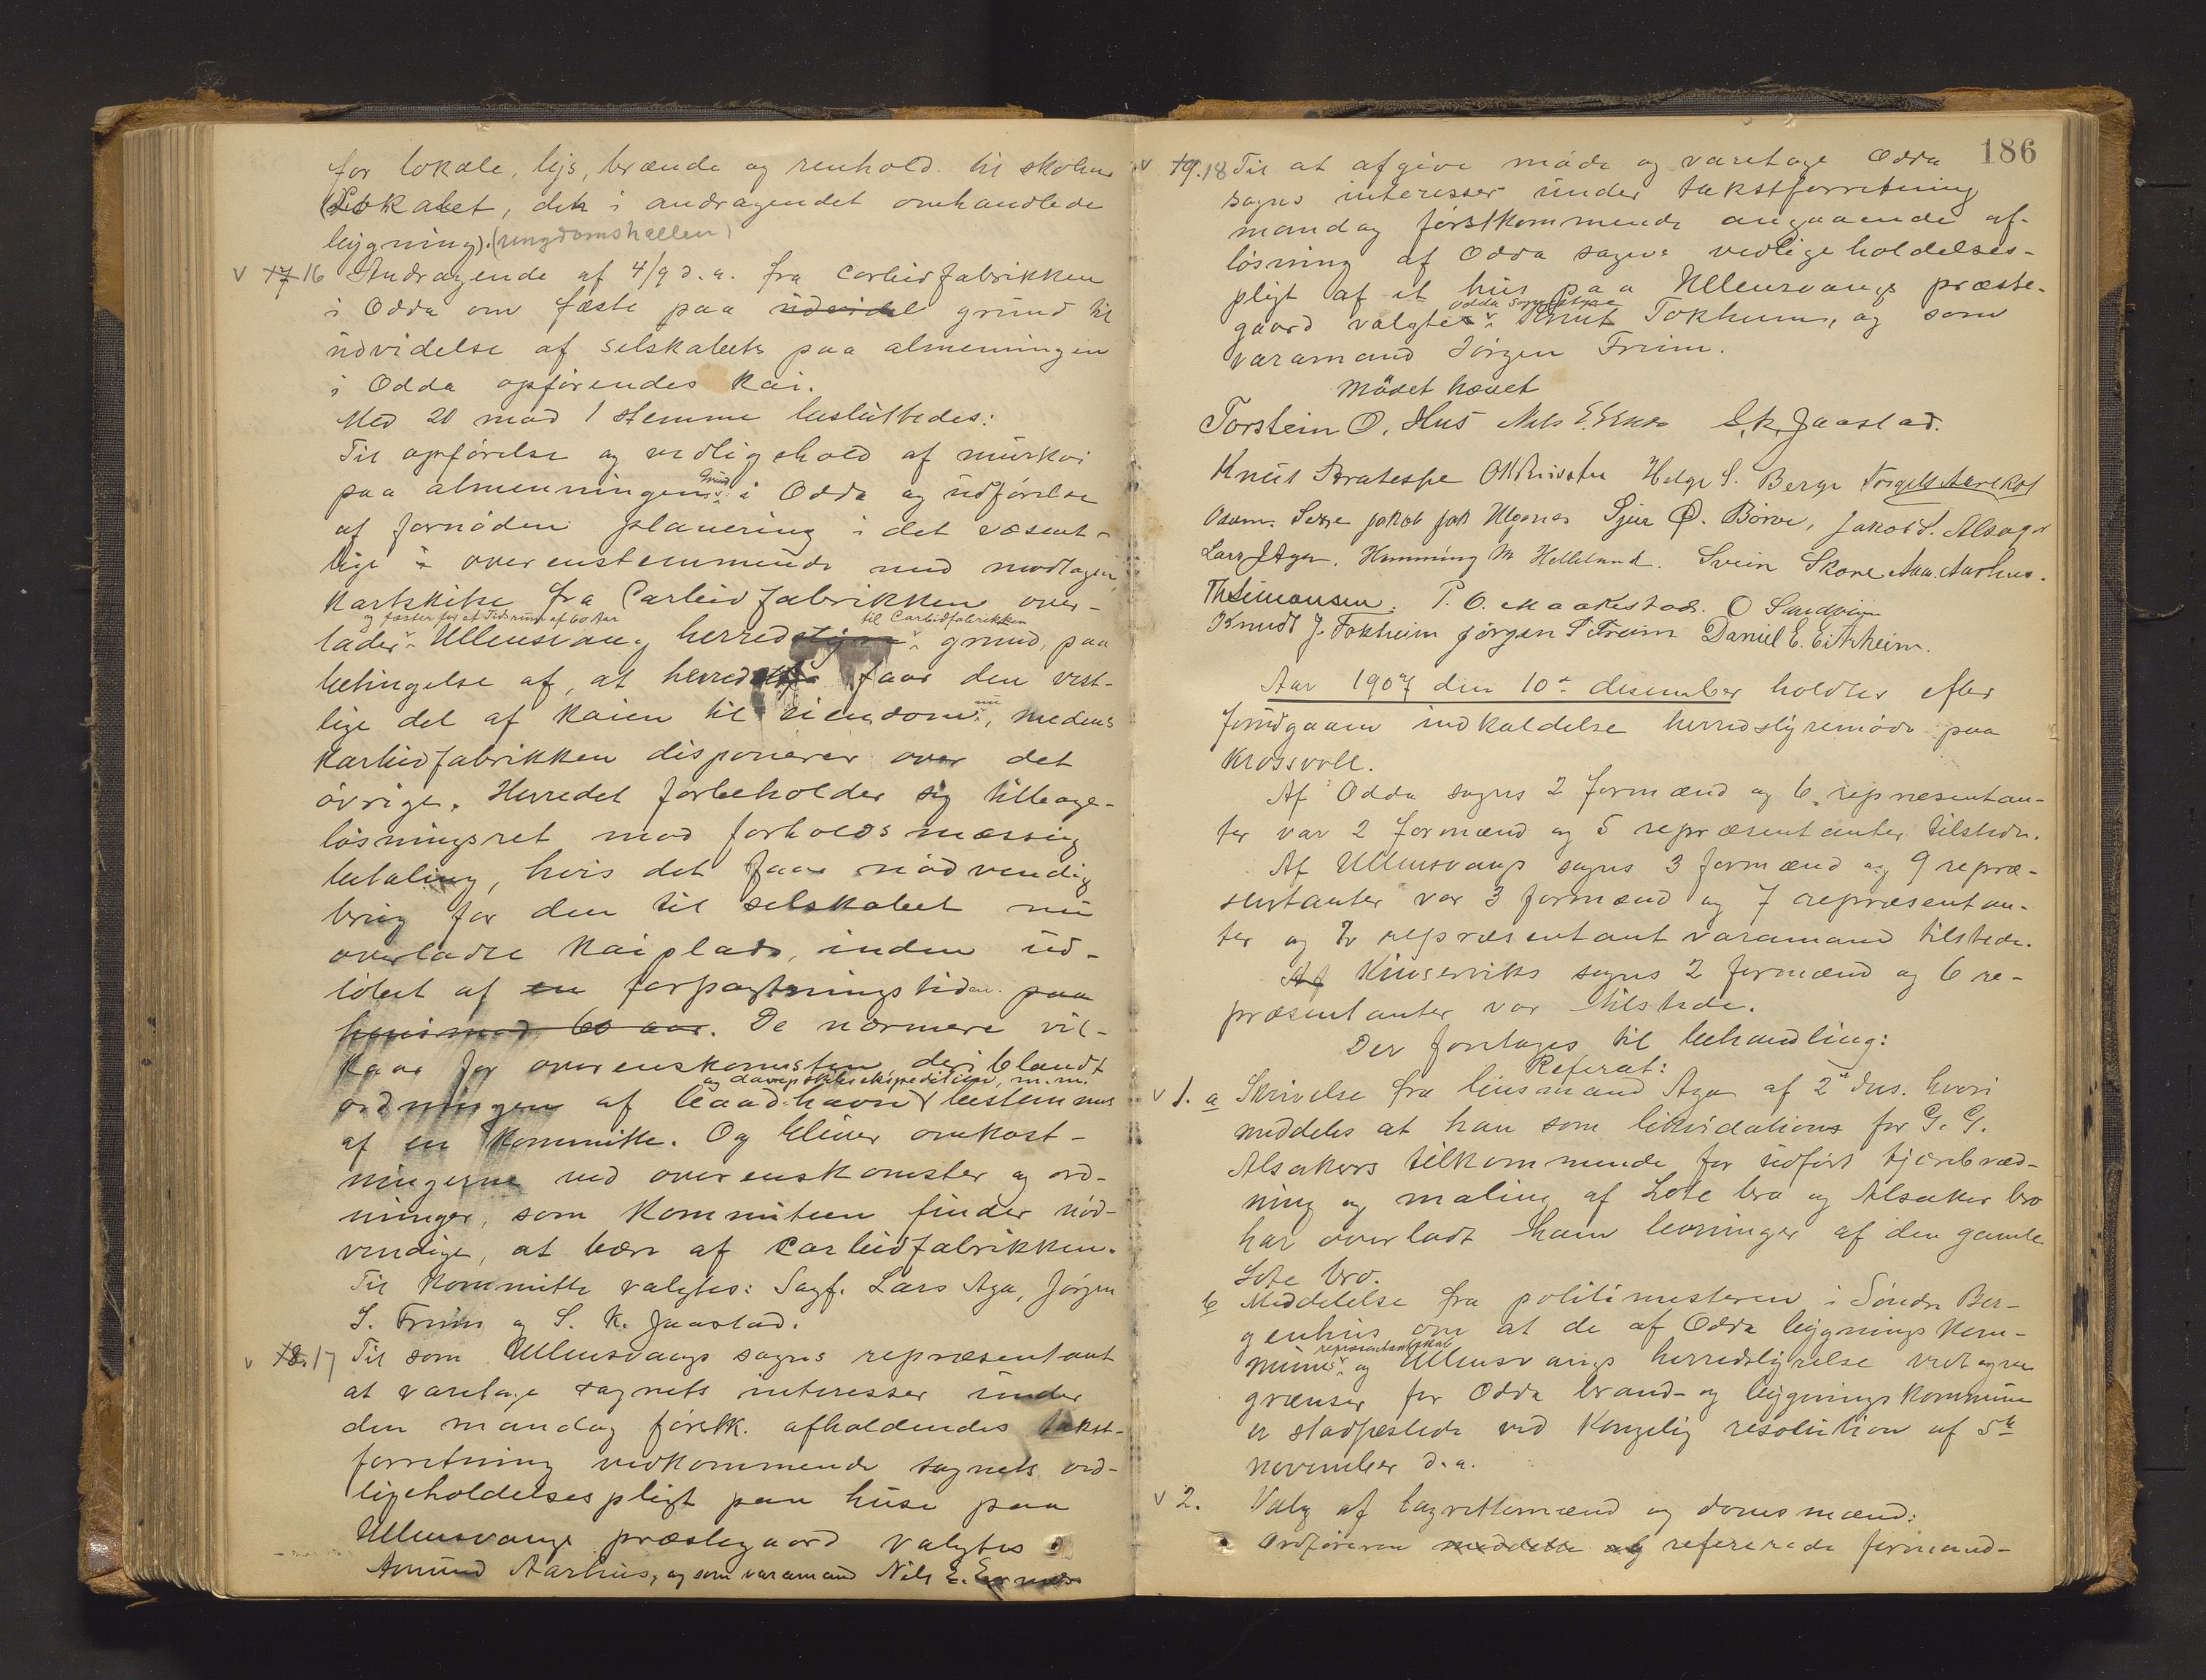 for lokale, lys, brænde og renhold til skolen
(Lokalet, den i andragendet omhandlede
bygning). (ungdomshallen)
v 17 16 Andragende af 4/9 d.a. fra Carbidfabrikken
i Odda om fæste paa udvidel grund til
udvidelse af selskabets paa almenningen
i Odda opførendes kai.
Med 20 mod 1 stemme besluttedes:
Til opførelse og vedligehold af murkai
paa almenningens grund i Odda og udførelse
af fornøden planering i det væsent-
lige i overensstemmende med modtagen
Kartskitse fra Carbidfabrikken over-
og fæster for et Tidsrum af 60 Aar til Carbidfabrikken
lader Ullensvang herred grund, paa
betingelse af, at herred faar den vest-
lige del af kaien til eiendom nu, medens
Karbidfabrikken disponerer over det
øvrige. Herredet forbeholder sig tilbage-
løsningsret mod forholdsmæssig
betaling, hvis det faar nødvendig
brug for den til selskabet nu
overladte Kaiplads, inden ud-
løbet af en forpagtningstiden paa
60 aar. De nærmere vil-
kaar for overenskomsten deriblandt
og dampskibsekspedition, m.m.
ordningen af baadhavn bestemmes
af en Kommitte. Og bliver omkost-
ningerne ved overenskomster og ord-
ninger, som Kommiteen finder nød-
vendige, at bære af Carbidfabrikken.
Til Kommitte valgtes: Sagf. Lars Aga, Jørgen
S. Freim og S. K. Jaastad.
v 18. 17 Til som Ullensvangs sogns repræsentant
at varetage sognets interesser under
den mandag førstk. afholdendes takst-
forretning vedkommende sognets ved-
ligeholdelsespligt paa huse paa
Ullensvangs præstegaard valgtes
Amund Aarhus, og som varamand Nils E.
186
v 19. 18 Til at afgive møde og varetage Odda
sogns interesser under takstforretning
mandag førstkommende angaaende af-
løsning af Odda sogns vedligeholdelses-
pligt af et hus paa Ullensvangs præste-
Odda sognestyre
gaard valgtes Knut Tokheim, og som
varamand Jørgen Freim.
Mødet hævet
Torstein O. Hus Nils E. S. K. Jaastad.
Knut Bratespe Helge S. Berge Torgils Aarekol
Sexe Jakob Jak Ulgenes Sjur O. Børve, Jakob S. Alsager
Lars J Aga. Hemming M Helleland. Svein Skare Am. Aarhus.
Th Simonsen. P. O. Maakestad. O Sandvin
Knudt J. Tokheim Jørgen S Freim Daniel E. Eitrheim.
Aar 1907 den 10de desember holdtes efter
forudgaaen indkaldelse herredstyremøde paa
Krossvoll.
Af Odda sogns 2 formænd og 6 repræsentan-
ter var 2 formænd og 5 repræsentanter tilstede.
Af Ullensvangs sogns 3 formænd og 9 repræ-
sentanter var 3 formænd og 7 repræsentan-
ter og repræsentant varamand tilstede.
Af Kinserviks sogns 2 formænd og 6 re-
præsentanter var tilstede.
Der foretages til behandling:
Referat:
v 1. a Skrivelse fra lensmand Aga af 2 ds. hvori
meddeles at han som likvidation for G. G.
Alsakers tilkommende for udført tjærebræd-
ning og maling af Lote bro og Alsaker bro
har overladt ham levninger af den gamle
Lote bro.
b Meddelelse fra politimesteren i Søndre Ber-
genhus om at de af Odda bygningskom-
representantskab
munes og Ullensvangs herredstyrelse vedtagne
grænser for Odda brand- og bygningskommune
er stadfæstede ved Kongelig resolution af 5te
november d.a.
v 2. Valg af lagrettemænd og domsmænd:
Ordføreren meddelte og refererede formand-